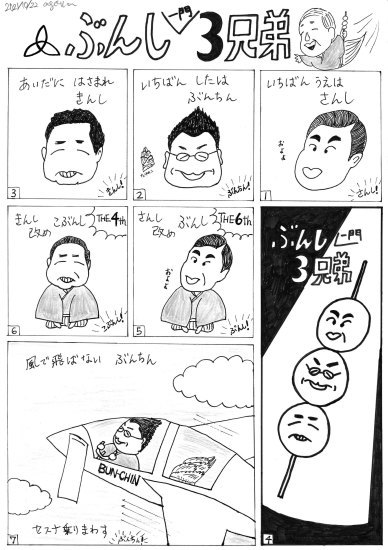 2021/10/22
ぶんし一門3兄弟
いちばん うえは
さんし
およよ
さんし!
1
いちばん したは
ぶんちん
ぶんちん!
2
あいだに はさまれ
きんし
きんし!
3
ぶんし一門
3兄弟
4
さんし
改め
ぶんし
THE 6th
およよ
ぶんし!
5
きんし
改め
こぶんし
THE 4th
こぶんし!
6
風で飛ばない ぶんちん
BUN-CHIN
セスナ乗りまわす
ぶんちん!
7